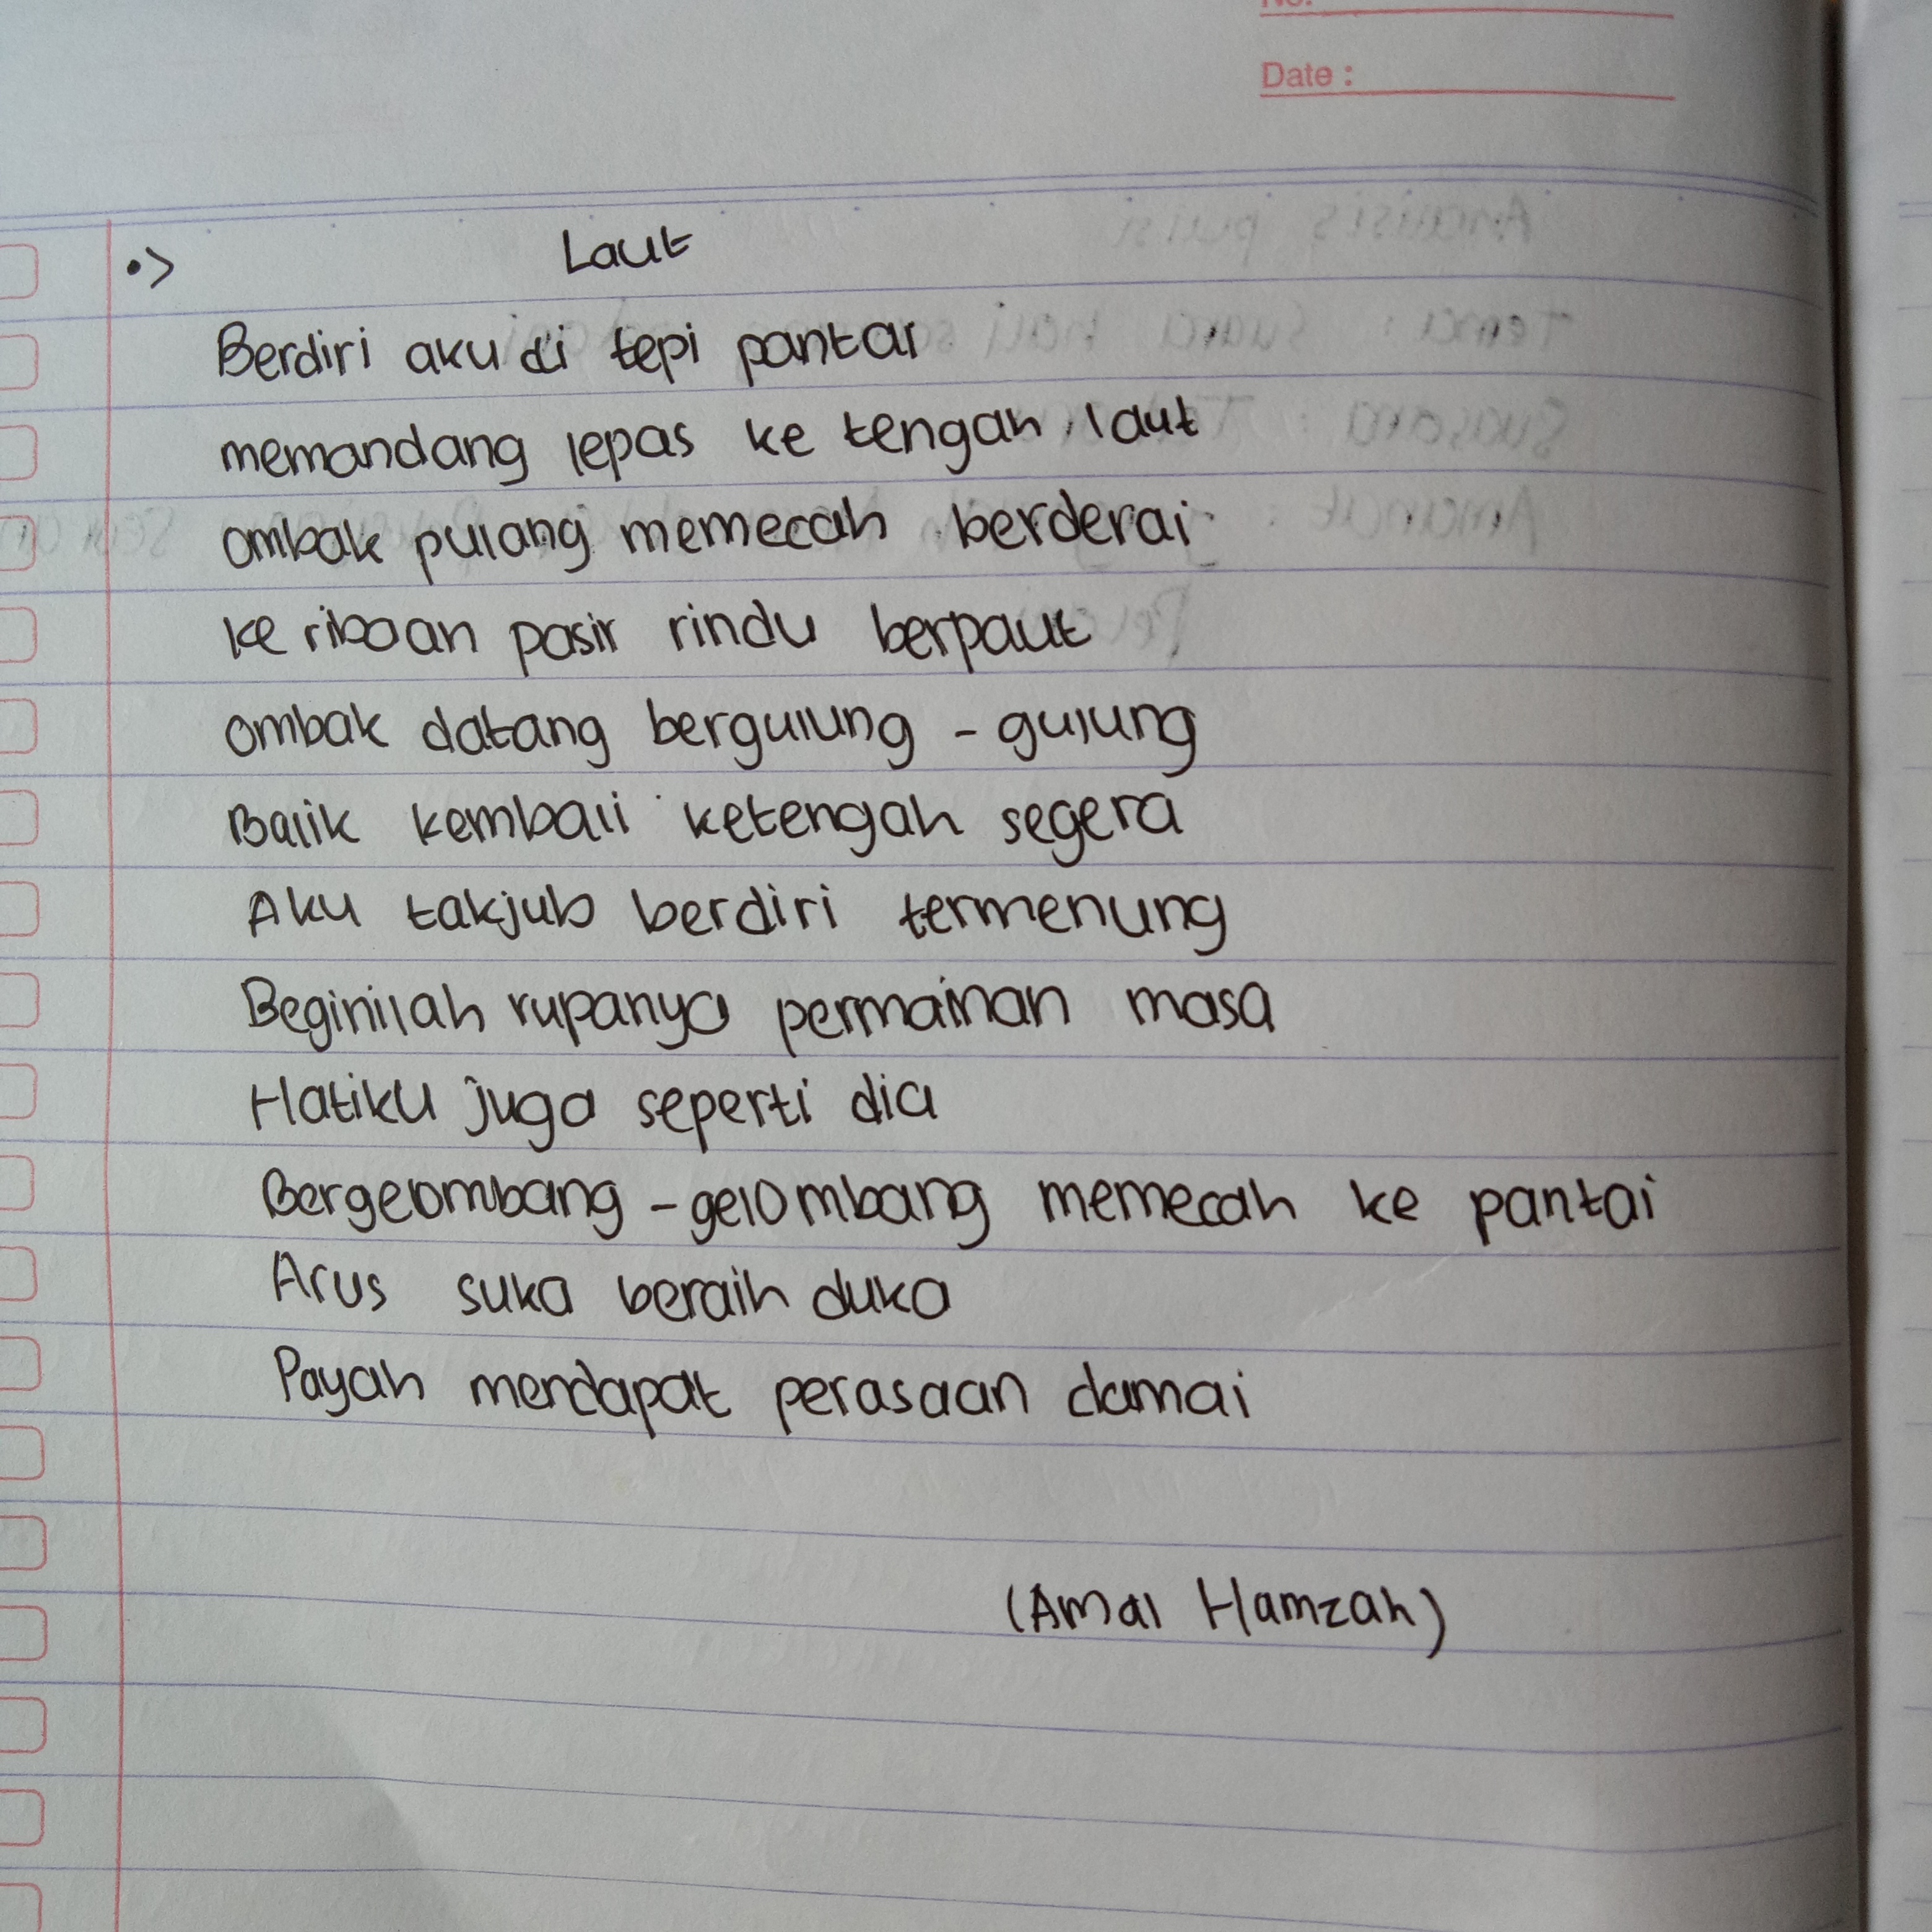 No.
Date :
•> Laut
Berdiri aku di tepi pantai
memandang lepas ke tengah laut
ombak pulang memecah berderai
ke ribaan pasir rindu berpaut
ombak datang bergulung - gulung
Balik kembali ketengah segera
Aku takjub berdiri termenung
Beginilah rupanya permainan masa
Hatiku juga seperti dia
Bergeombang - gelombang memecah ke pantai
Arus suka beraih duka
Payah mendapat perasaan damai
(Amal Hamzah)